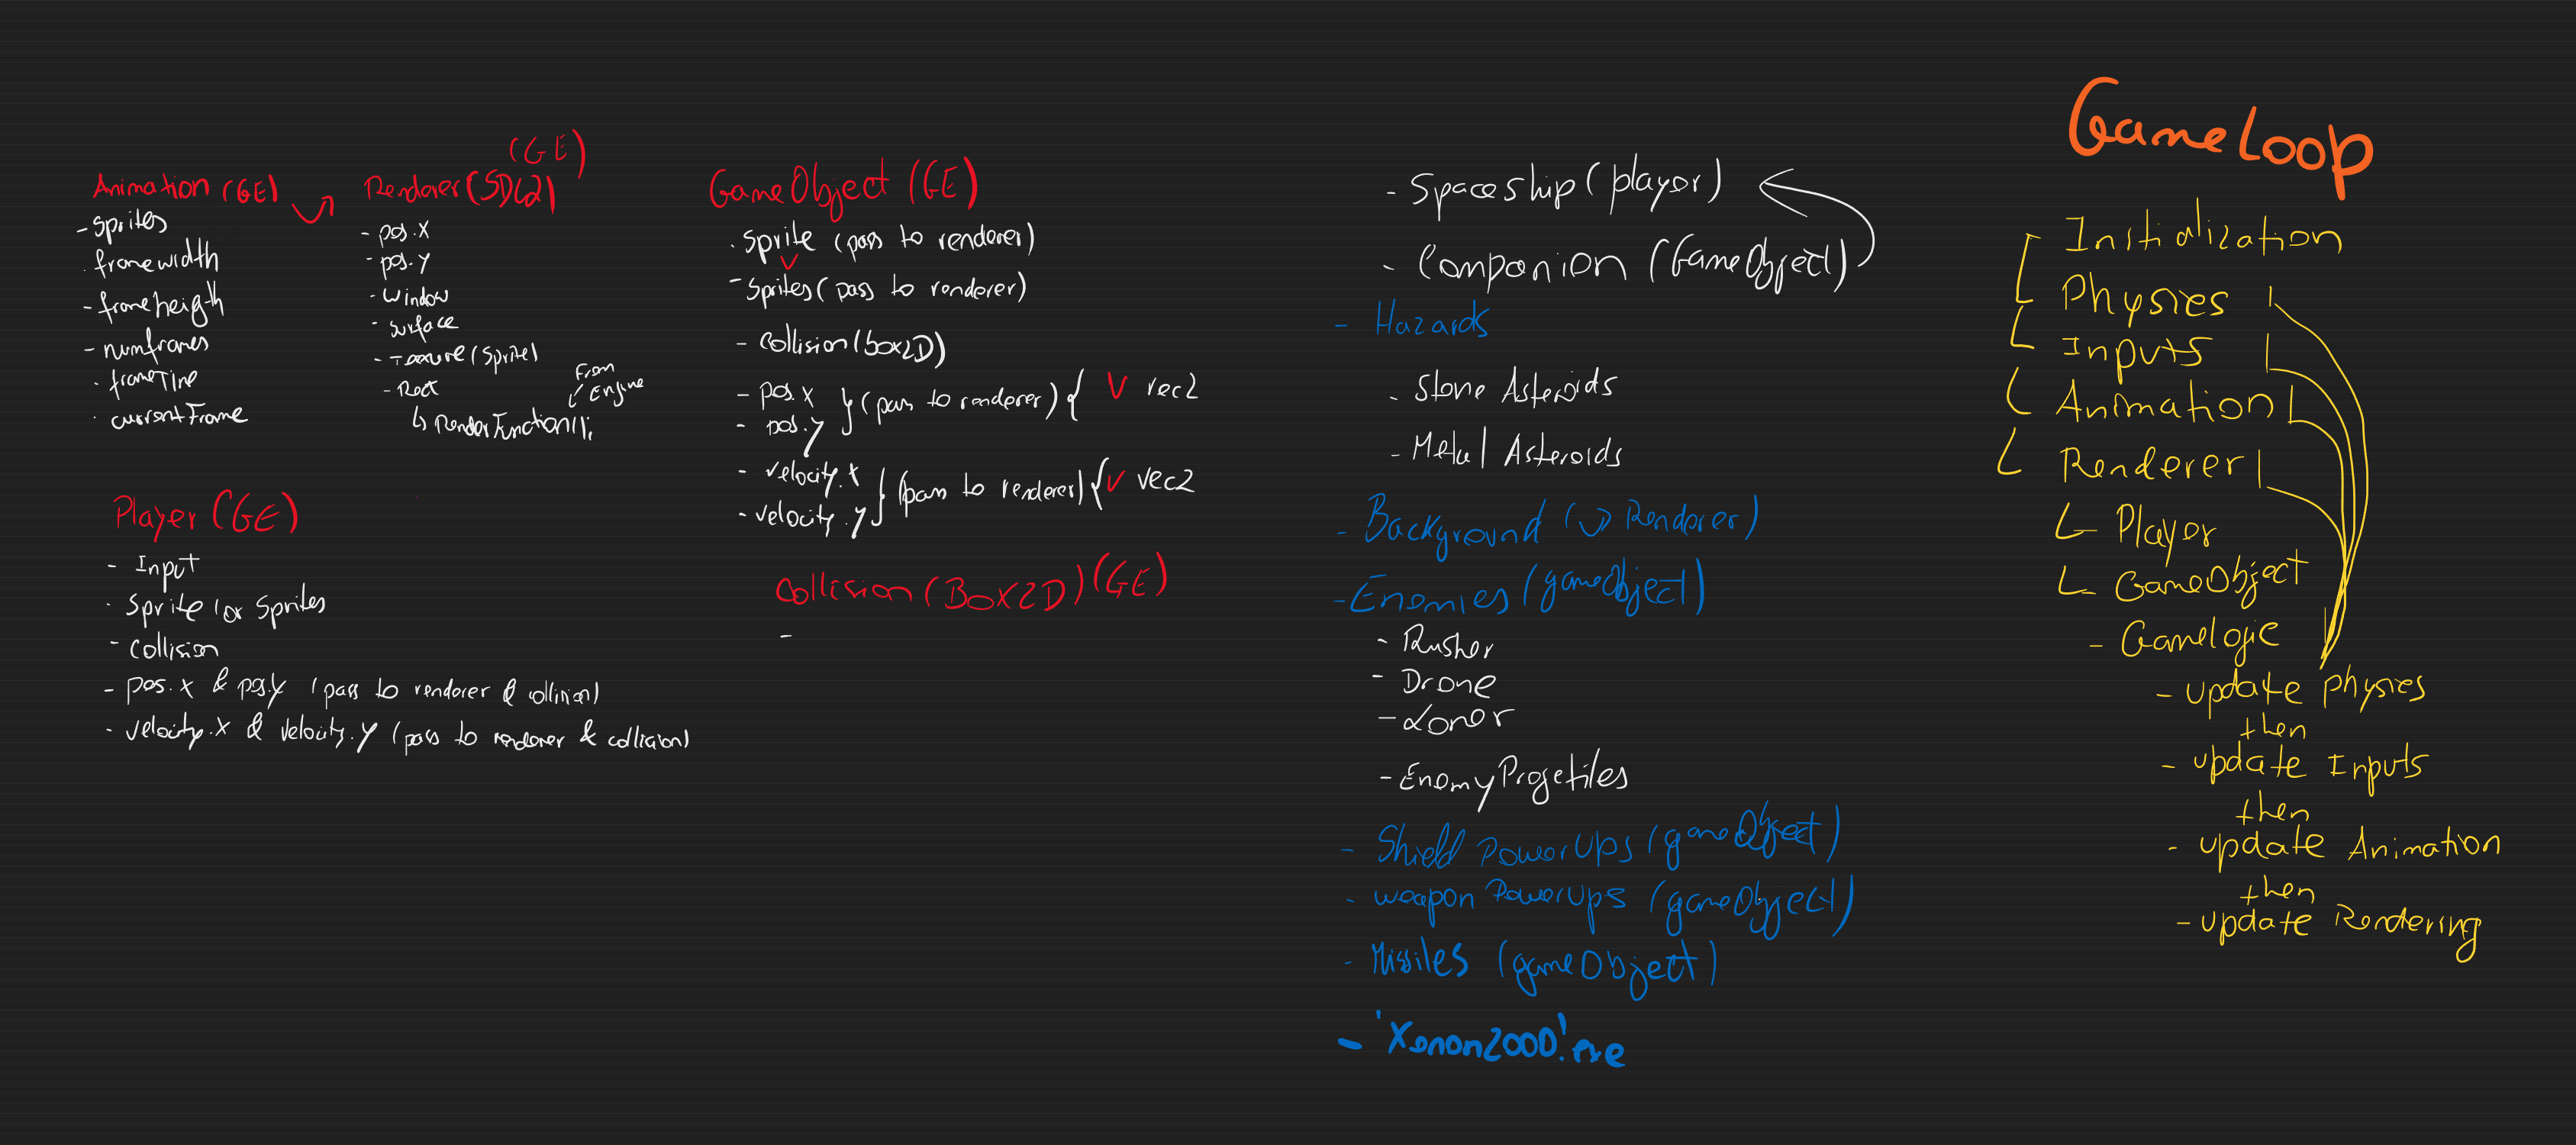 Animation (GE)
- Sprites
. framewidth
- frameheigth
- numframes
. frameTime
. currentFrame
(GE)
Renderer (SDL2)
- pos.x
- pos.y
- window
- surface
- Texture (Sprite)
- Rect
From
Engine
RenderFunction();
Player (GE)
- Input
. Sprite (or Sprites
- Collision
- pos.x & pos.y (pass to renderer & collision)
- velocity.x & velocity.y (pass to renderer & collision)
GameObject (GE)
. Sprite (pass to renderer)
V
- Sprites (pass to renderer)
- Collision (box2D)
- pos.x
- pos.y
} (pass to renderer) { V vec2
- velocity.x
- velocity.y
} (pass to renderer) { V vec2
Collision (Box2D) (GE)
-
- Spaceship (player)
- Companion (GameObject)
- Hazards
- Stone Asteroids
- Metal Asteroids
- Background (-> Renderer)
- Enemies (gameObject)
- Rusher
- Drone
- Loner
- EnemyProjetiles
- Shield PowerUps (gameObject)
- weapon PowerUps (gameObject)
- Missiles (gameObject)
- 'Xenon2000'.exe
GameLoop
Initialization
Physics
Inputs
Animation
Renderer
Player
GameObject
- Gamelogic
- update physics
then
- update Inputs
then
- update Animation
then
- update Rendering